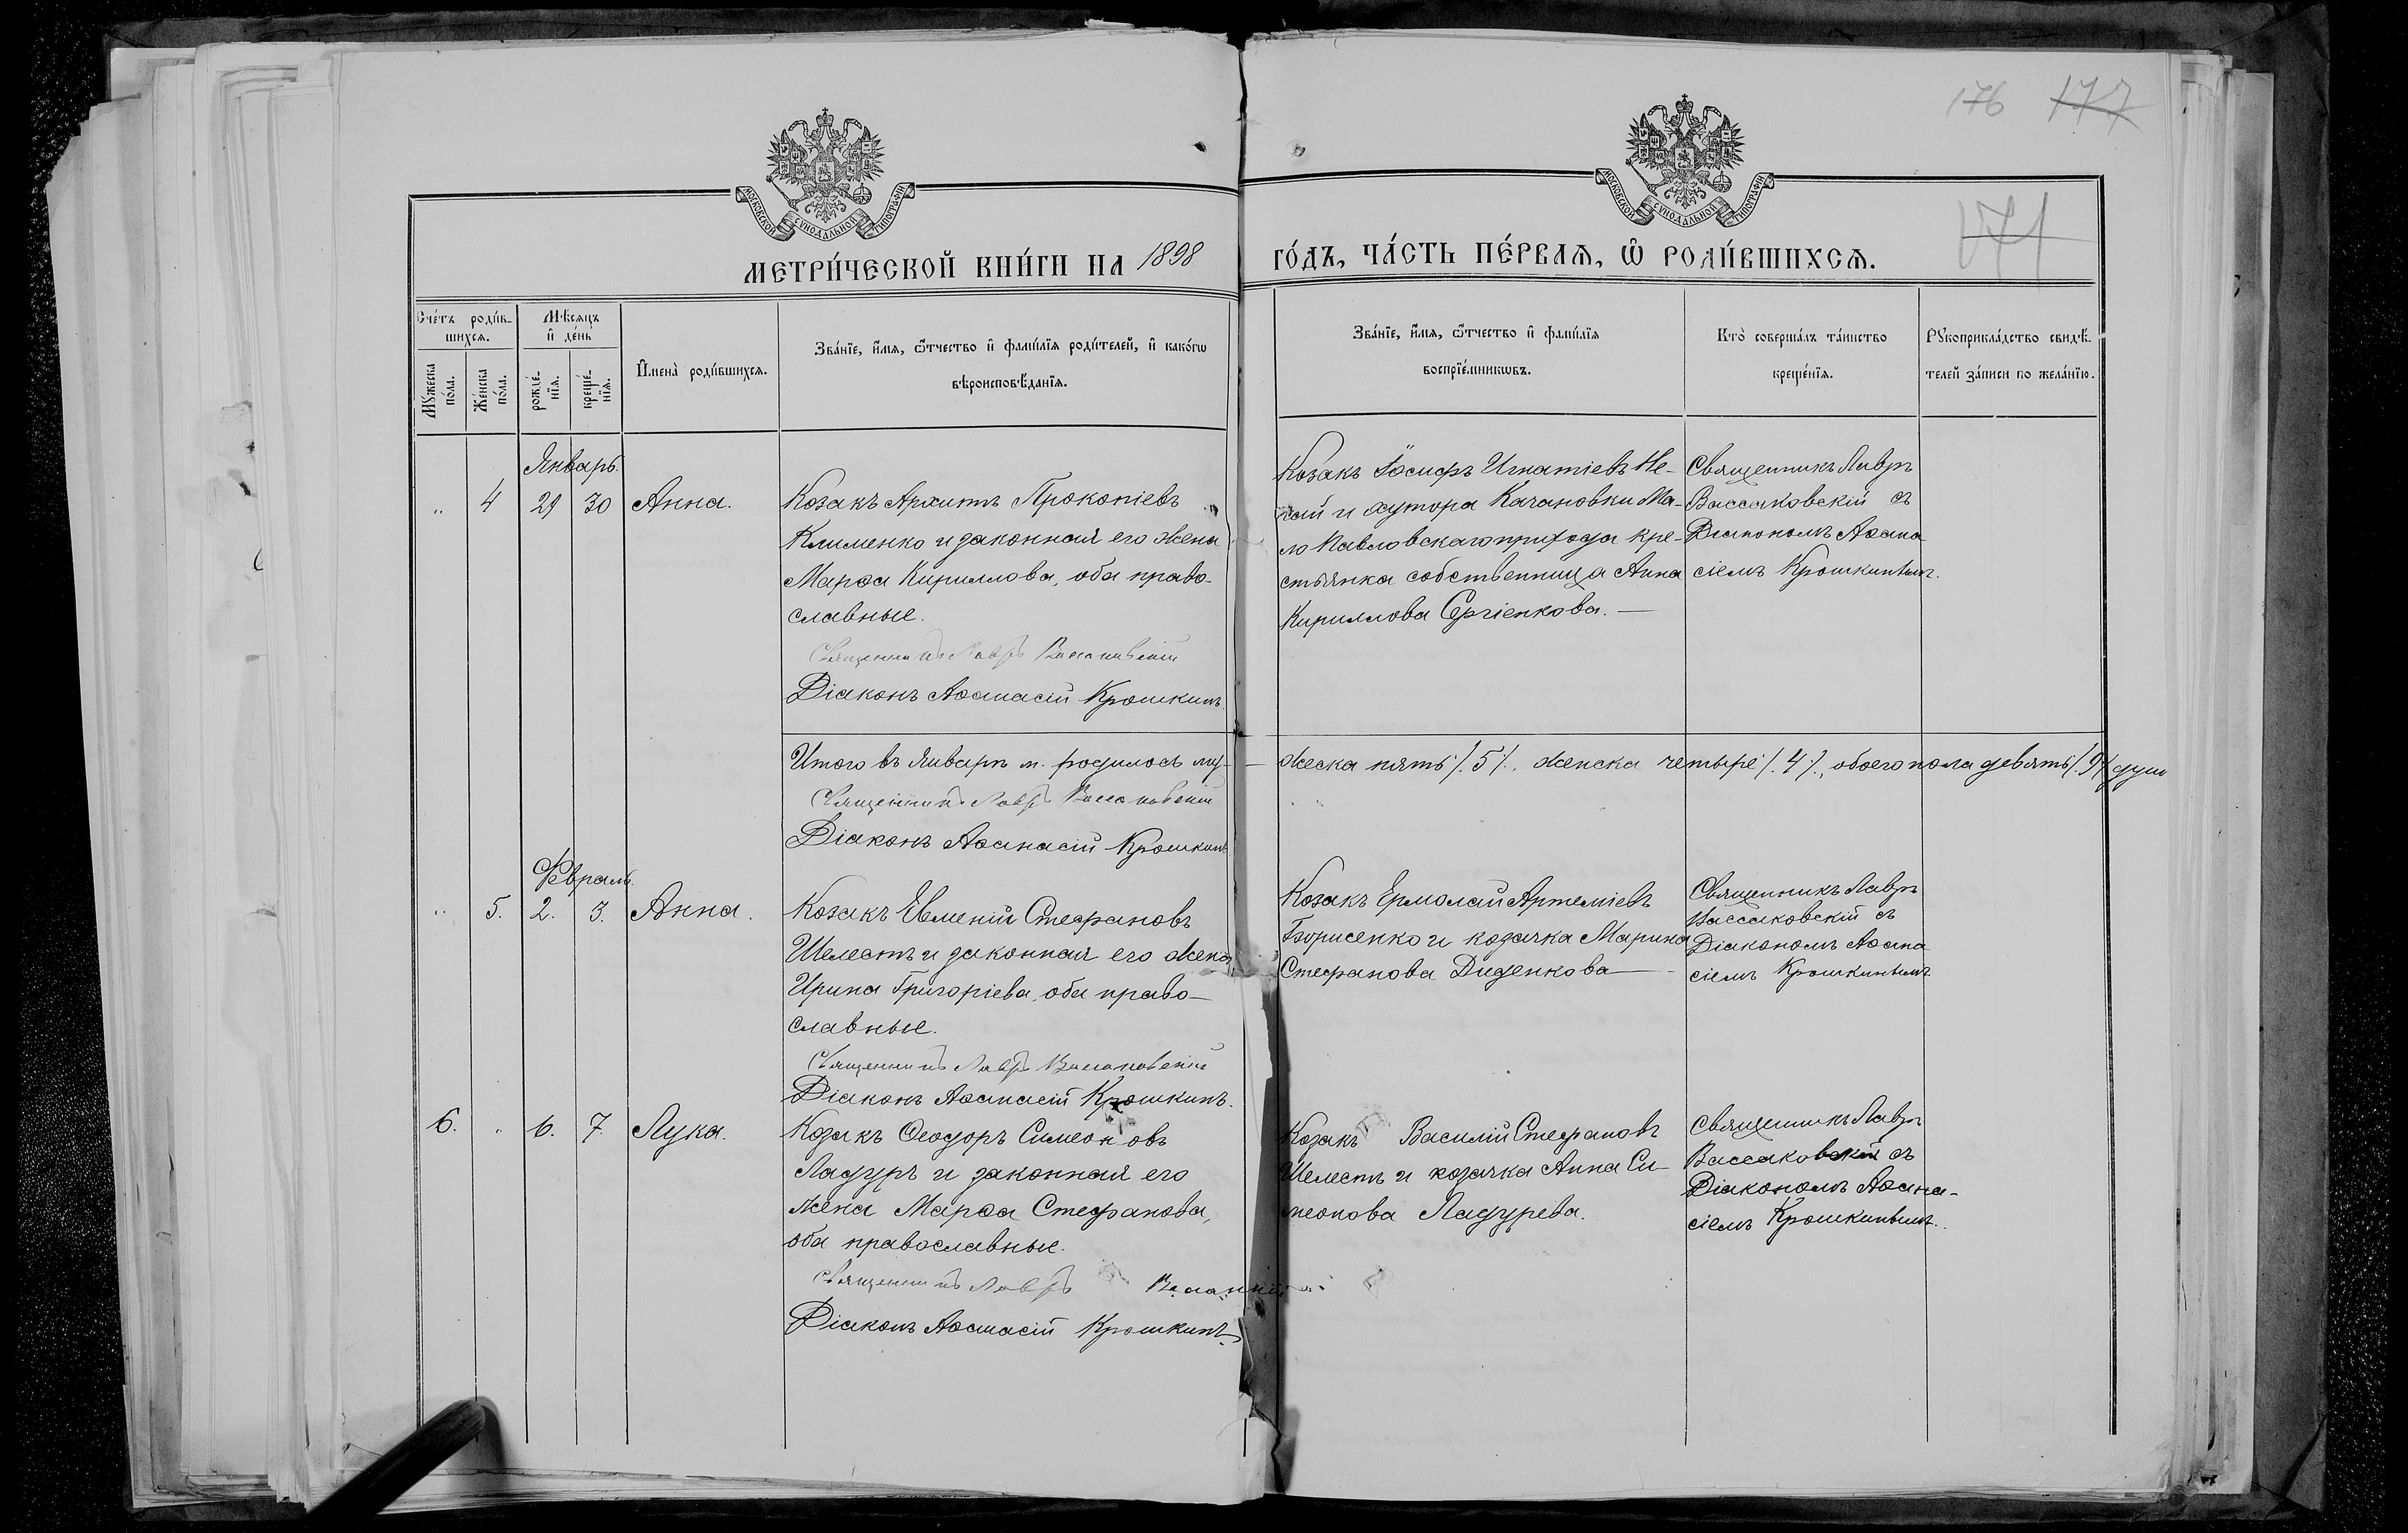 176 177
171
МОСКОВСКОЙ СУНОДАЛЬНОЙ ТИПОГРАФІИ
МОСКОВСКОЙ СУНОДАЛЬНОЙ ТИПОГРАФІИ
МЕТРИ́ЧЕСКОЙ КНИ́ГИ НА 1898 ГО́ДЪ, ЧА́СТЬ ПЕ́РВАѦ, Ѡ҆ РОДИ́ВШИХСѦ.
Сче́тъ роди́в-
шихсѧ.
Мꙋ́жеска по́ла.
Же́нска по́ла.
Мѣ́сѧцъ
и҆ де́нь
рожде́-нїѧ.
креще́-нїѧ.
И҆мена̀ роди́вшихсѧ.
Зва́нїе, и҆́мѧ, ѻ҆́тчество и҆ фами́лїѧ роди́телей, и҆ како́гѡ
вѣроисповѣ́данїѧ.
Зва́нїе, и҆́мѧ, ѻ҆́тчество и҆ фами́лїѧ
воспрїе́мникѡвъ.
Кто̀ соверша́лъ та́инство
креще́нїѧ.
Рꙋкоприкла́дство свидѣ́-
телей за́писи по жела́нїю.
Январь.
" 4 29 30 Анна.
Козакъ Архипъ Прокопіевъ
Клименко и законная его жена
Марѳа Кириллова, оба право-
славные.
Священникъ Лавръ Вассаковскій
Діаконъ Аѳанасій Крошкинъ.
Козакъ Іосифъ Игнатіевъ Не-
и хутора Качановки Ма-
ло Павловскаго прихода кре-
стьянка собственница Анна
Кириллова Сергіенкова. —
Священникъ Лавръ
Вассаковскій съ
Діакономъ Аѳана
сіемъ Крошкинымъ.
Итого въ Январѣ м. родилось му- — жеска пять /. 5 /., женска четыре /. 4 /., обоего пола девять /. 9 /. душъ
Священникъ Лавръ Вассаковскій
Діаконъ Аѳанасій Крошкинъ
Февраль.
" 5. 2. 3. Анна.
Козакъ Евменій Стефановъ
Шелестъ и законная его жена
Ирина Григоріева, оба право-
славные.
Священникъ Лавръ Вассаковскій
Діаконъ Аѳанасій Крошкинъ.
Козакъ Ермолай Артеміевъ
Борисенко и козачка Марина
Стефанова Диденкова —
Священникъ Лавръ
Вассаковскій съ
Діакономъ Аѳана
сіемъ Крошкинымъ
6. " 6. 7. Лука.
Козакъ Ѳеодоръ Симеоновъ
Ладуръ и законная его
жена Марѳа Стефанова,
оба православные.
Священникъ Лавръ
Діаконъ Аѳанасій Крошкинъ
Козакъ Василій Стефановъ
Шелестъ и козачка Анна Си-
меонова Ладурева.
Священникъ Лавръ
Вассаковскій съ
Діакономъ Аѳана-
сіемъ Крошкинымъ.